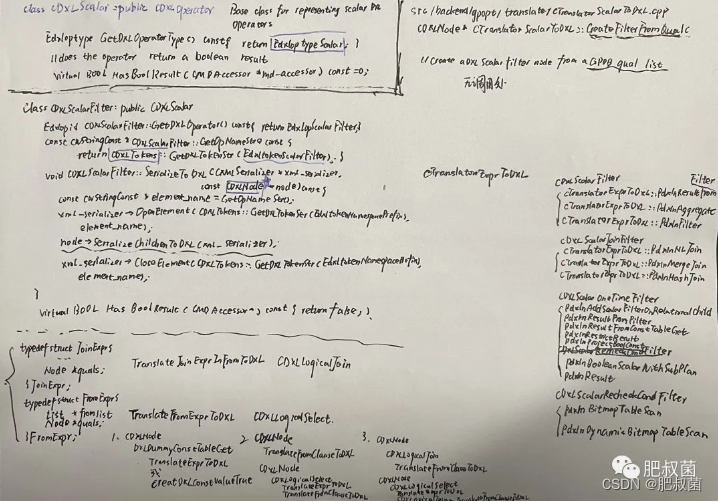 class CDXLScalar:public CDXLOperator
Base class for representing scalar DXL
operators
Edxloptype GetDXLOperatorType() const{ return EdxloptypeScalar; }
//does the operator return a boolean result
virtual BOOL HasBoolResult(CMDAccessor *md-accessor) const =0;
src/backend/gpopt/translate/CTranslatorScalarToDXL.cpp
CDXLNode* CTranslatorScalarToDXL::CreateFilterFromQual(
//create a DXL scalar filter node from a GPDB qual list
Class CDXLScalarFilter: public CDXLScalar
Edxlopid CDXLScalarFilter::GetDXLOperator() const{ return EdxlopScalarFilter;}
const CWStringConst* CDXLScalarFilter::GetOpNameStr() const{
return CDXLTokens::GetDXLTokenStr(EdxltokenScalarFilter); }
void CDXLScalarFilter::SerializeToDXL(CXMLSerializer *xml_serializer,
const CDXLNode *node) const{
const CWStringConst* element_name = GetOpNameStr();
xml_serializer->OpenElement(CDXLTokens::GetDXLTokenStr(EdxltokenNamespacePrefix),
element_name);
node->SerializeChildrenToDXL(xml_serializer);
xml_serializer->CloseElement(CDXLTokens::GetDXLTokenStr(EdxltokenNamespacePrefix),
element_name);
}
virtual BOOL HasBoolResult(CMDAccessor*) const{ return false; }
CTranslatorExprToDXL
CDXLScalarFilter
Filter
CTranslatorExprToDXL::PdxlnAggregate
CTranslatorExprToDXL::PdxlnFilter
CDXLScalarJoinFilter
CTranslatorExprToDXL::PdxlnNLJoin
CTranslatorExprToDXL::PdxlnMergeJoin
CTranslatorExprToDXL::PdxlnHashJoin
CDXLScalarOneTimeFilter
PdxlnResultFromFilter
PdxlnResultFromConstTableGet
PdxlnBooleanScalarWithSubPlan
PdxlnResult
CDXLScalarRecheckCondFilter
PdxlnBitmapTableScan
PdxlnDynamicBitmapTableScan
typedef struct JoinExpr{
Node *quals;
}JoinExpr;
TranslateJoinExprInFromToDXL CDXLLogicalJoin
typedef struct FromExpr{
List *fromlist
Node *quals;
}FromExpr;
TranslateFromExprToDXL CDXLLogicalSelect.
1. CDXLNode
DXLDummyConstTableGet
TranslateExprToDXL
CreateDXLConstValueTrue
2 CDXLNode
TranslateFromClauseToDXL
CDXLNode
CDXLLogicalSelect
TranslateExprToDXL
TranslateFromClauseToDXL
3. CDXLNode
CDXLLogicalJoin
TranslateFromClauseToDXL
CDXLNode
CDXLLogicalSelect
TranslateExprToDXL
肥叔菌
CSDN @肥叔菌